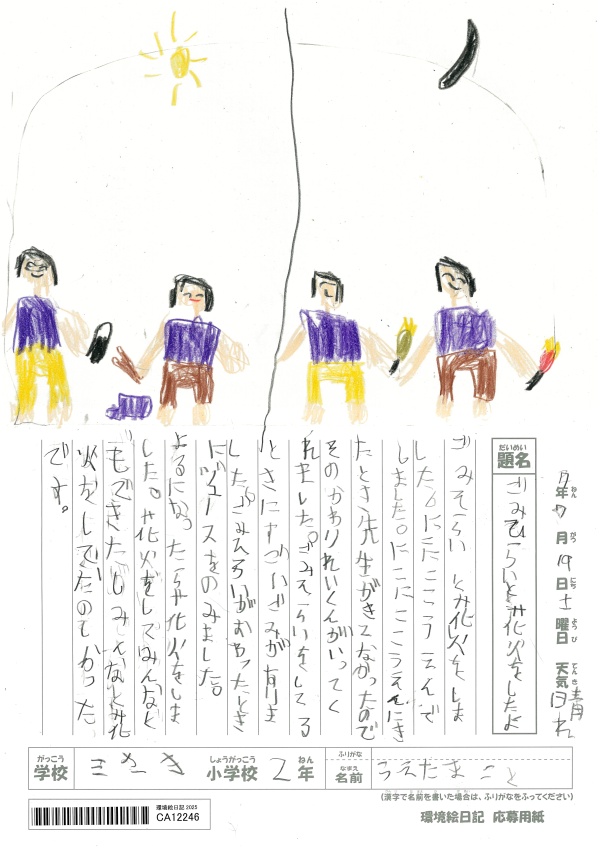 7年7月19日土曜日 天気 晴れ
ねん がつ にち ようび てんき
だいめい
題名
ごみひろいと花火をしたよ
ごみそらいと花火をしま
した。にこにここうえんで
しました。にこにここうえんにき
たとき先生がきてなかったので
そのかわりれいくんがいってく
れました。ごみそらいをしてる
ときにすごいごみが有りま
した。ごみひろいがおわったとき
にジュースをのみました。
よるになったら花火をしま
した。花火をしてみんなと
もできたしみんなと花
火をしてたのしかった
です。
がっこう
学校
しょうがっこう
小学校
2
ねん
年
ふりがな
なまえ
名前
うえたま こと
(漢字で名前を書いた場合は、ふりがなをふってください)
環境絵日記 2025
CA12246
環境絵日記 応募用紙